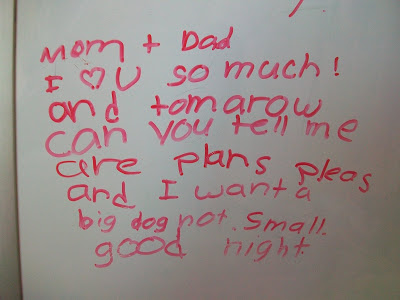 mom + Dad
I ♡ U so much!
and tomarow
can you tell me
are plans pleas
and I want a
big dog not. Small.
good night